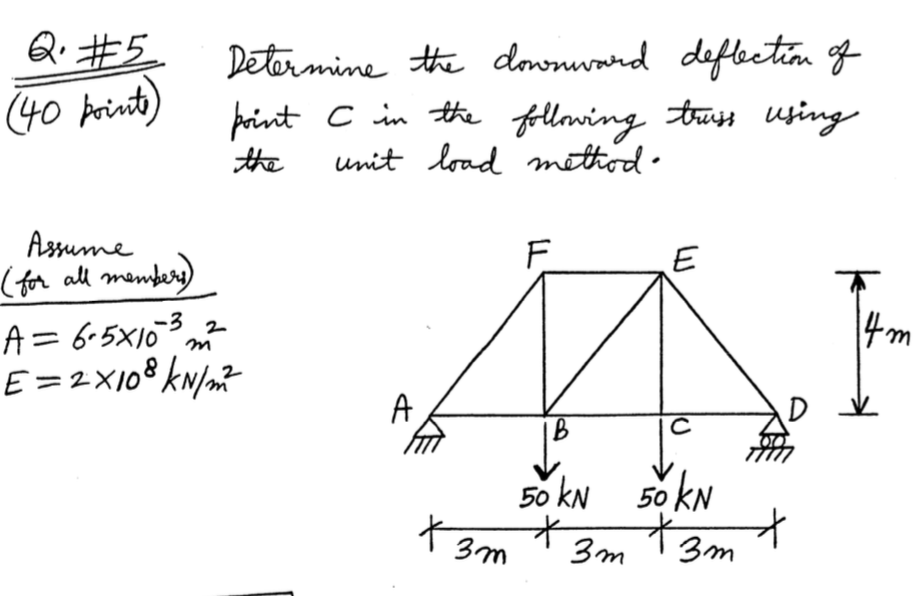 Q. #5
(40 points)
Determine the downward deflection of
point C in the following truss using
the unit load method.
Assume
(for all members)
A = 6.5×10⁻³ m²
E = 2×10⁸ kN/m²
F
E
4m
A
B
C
D
50 kN
50 kN
3m
3m
3m